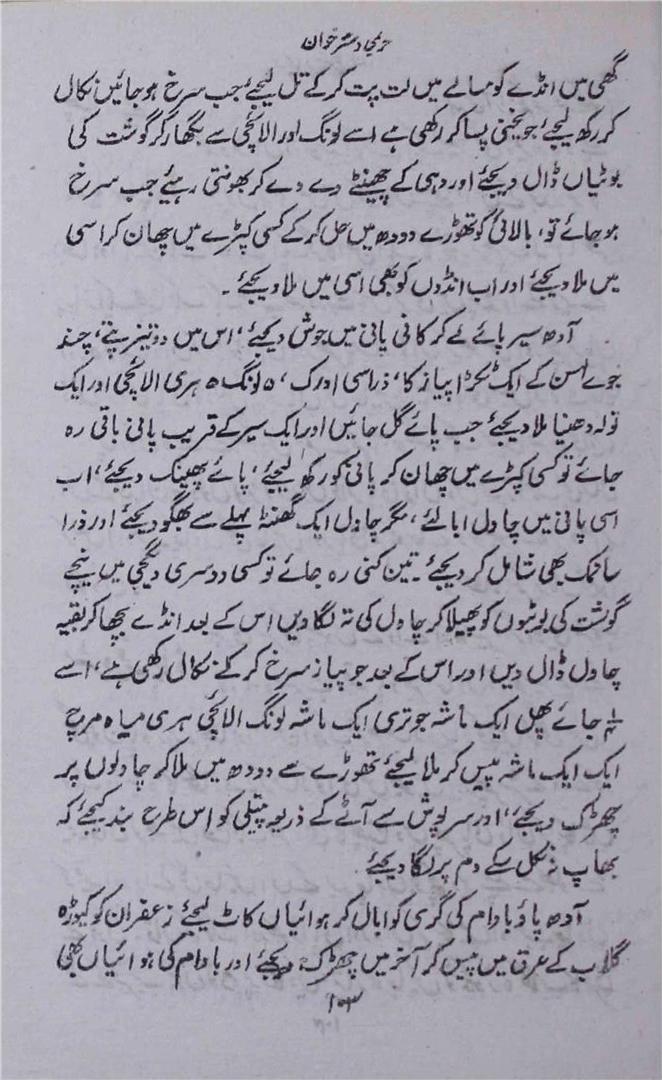 حریمی دسترخوان
گھی میں انڈے کو مسالے میں لت پت کر کے تل لیجئے، جب سرخ ہو جائیں نکال
کر رکھ لیجئے، جو یخنی پسا کر رکھی ہے اسے لونگ اور الائچی سے بگھار کر گوشت کی
بوٹیاں ڈال دیجئے اور دہی کے چھینٹے دے دے کر بھونتی رہیئے جب سرخ
ہو جائے تو، بالائی کو تھوڑے دودھ میں حل کر کے کسی کپڑے میں چھان کر اسی
میں ملا دیجئے اور اب انڈوں کو بھی اسی میں ملا دیجئے۔
آدھ سیر پائے لے کر کافی پانی میں جوش دیجئے، اس میں دو تیز پتے، چند
جوے لہسن کے ایک ٹکڑا پیاز کا، ذرا سی ادرک، ۵ لونگ ۵ ہری الائچی اور ایک
تولہ دھنیا ملا دیجئے جب پائے گل جائیں اور ایک سیر کے قریب پانی باقی رہ
جائے تو کسی کپڑے میں چھان کر پانی کو رکھ لیجئے، پائے پھینک دیجئے، اب
اسی پانی میں چاول ابالئے، مگر چاول ایک گھنٹہ پہلے سے بھگو دیجئے اور ذرا
سا نمک بھی شامل کر دیجئے۔ تین کنی رہ جائے تو کسی دوسری دیگچی میں نیچے
گوشت کی بوٹیوں کو پھیلا کر چاول کی تہ لگا دیں اس کے بعد انڈے بچھا کر بقیہ
چاول ڈال دیں اور اس کے بعد جو پیاز سرخ کر کے نکال رکھی ہے، اسے
جائے پھل ایک ماشہ جوتری ایک ماشہ لونگ الائچی ہری سیاہ مرچ
ایک ایک ماشہ پیس کر ملا لیجئے تھوڑے سے دودھ میں ملا کر چاولوں پر
چھڑک دیجئے، اور سرپوش سے آٹے کے ذریعہ پتیلی کو اس طرح بند کیجئے کہ
بھاپ نہ نکل سکے دم پر لگا دیجئے۔
آدھ پاؤ بادام کی گری کو ابال کر ہوائیاں کاٹ لیجئے زعفران کو کیوڑہ
گلاب کے عرق میں پیس کر آخر میں چھڑک دیجئے اور بادام کی ہوائیاں بھی
۱۰۳